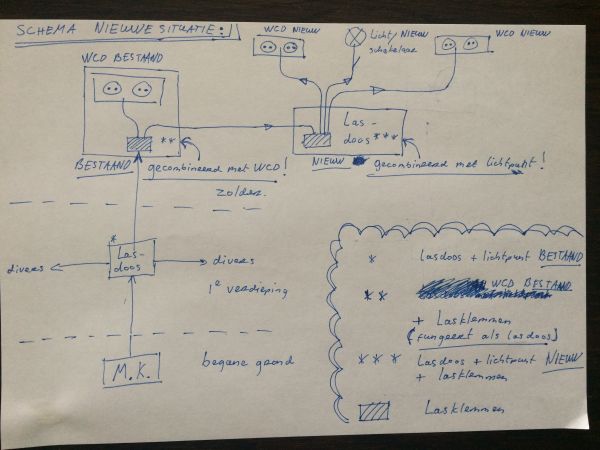 SCHEMA NIEUWE SITUATIE:
WCD BESTAAND
WCD NIEUW
Licht/NIEUW
schakelaar
WCD NIEUW
**
BESTAAND
gecombineerd met WCD!
zolder.
Las-
doos***
NIEUW
gecombineerd met lichtpunt!
*
Las-
doos
divers
divers
1e verdieping
M.K.
begane grond
* Lasdoos + lichtpunt BESTAAND
** WCD BESTAAND
+ Lasklemmen
(fungeert als lasdoos)
*** Lasdoos + lichtpunt NIEUW
+ lasklemmen
Lasklemmen